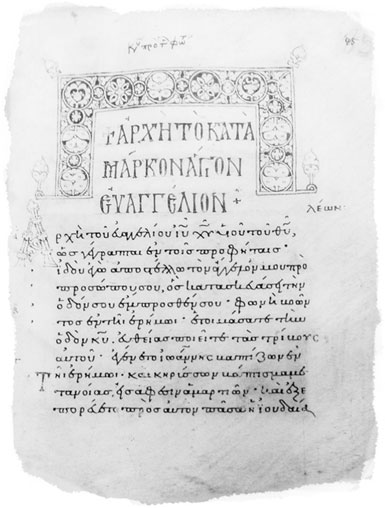 ΑΡΧΗ ΤΟ ΚΑΤΑ
ΜΑΡΚΟΝ ΑΓΙΟΝ
ΕΥΑΓΓΕΛΙΟΝ +
λεων:
ρχὴ τοῦ εὐαγγελίου ἰῡ χῡ υἱοῦ τοῦ θῡ,
ὡς γέγραπται ἐν τοῖς προφήταις·
ἰδοὺ ἐγὼ ἀποστέλλω τὸν ἄγγελόν μου πρὸ
προσώπου σου, ὃς κατασκευάσει τὴν
ὁδόν σου ἔμπροσθέν σου· φωνὴ βοῶν
τος ἐν τῆ ἐρήμω· ἑτοιμάσατε τὴν
ὁδὸν κῡ, εὐθείας ποιεῖτε τὰς τρίβους
αὐτοῦ· ἐγένετο ἰωάννης βαπτίζων ἐν
τῆ ἐρήμω· καὶ κηρύσσων βάπτισμα με
τανοίας, εἰς ἄφεσιν ἁμαρτιῶν· καὶ ἐξε
πορεύετο πρὸς αὐτὸν πᾶσα ἡ ἰουδαία